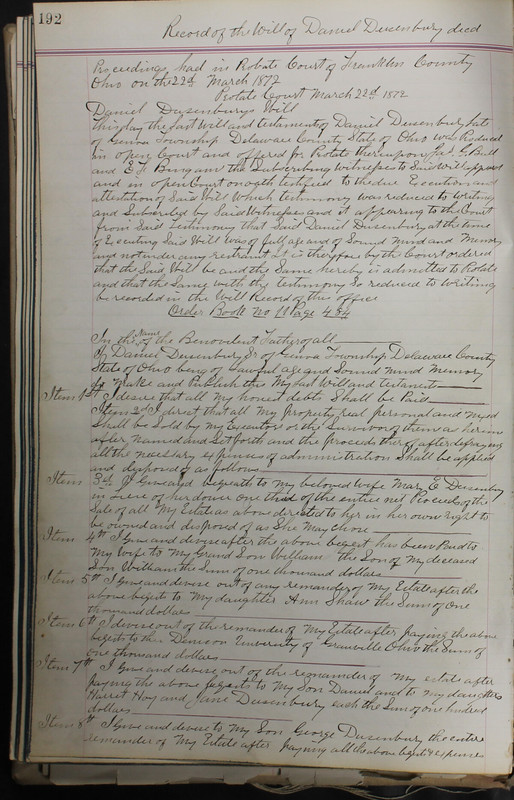 192
Record of the Will of Daniel Dusenbury decd
Proceedings had in Probate Court of Franklin County
Ohio on the 22d March 1872
Probate Court March 22d 1872
Daniel Dusenburys Will
This day the last Will and testament of Daniel Dusenbury late
of Genoa Township Delaware County State of Ohio was Produced
in open Court and offered for Probate thereupon Jas G Bull
and E F Bingam the Subscribing Witnesses to Said Will appeared
and in open Court on oath testified to the due Execution and
attestation of Said Will Which testimony was reduced to Writing
and Subscribed by Said Witnesses and it appearing to the Court
from Said testimony that Said Daniel Dusenbury at the time
of Executing Said Will was of full age and of Sound Mind and Memory
and not under any restraint It is therefore by the Court ordered
that the Said Will be and the Same hereby is admitted to Probate
and that the Same with the testimony So reduced to Writing
be recorded in the Will Record of this office
Order Book No 11 Page 484
In the Name of the Benevolent Father of all
I Daniel Dusenbury Sr of Genoa Township Delaware County
State of Ohio being of Lawful age and Sound Mind Memory
do Make and Publish this My last Will and testament
Item 1st I desire that all my honest debts Shall be Paid
Item 2d I direct that all My Property real personal and Mixed
Shall be Sold by My Executors or the Survivor of them as herein
after Named and Set forth and the proceeds thereof after defraying
all the necessary expenses of administration Shall be applied
and disposed of as follows
Item 3d I Give and bequeath to My beloved Wife Mary E Dusenbury
in Lieu of her dower one third of the entire net Proceeds of the
Sale of all My Estate as above directed to her in her own right to
be owned and disposed of as She May Chose
Item 4th I Give and devise after the above beqest has been Paid to
My Wife to My Grand Son William the Son of My deceased
Son William the Sum of one thousand dollars
Item 5th I Give and devise out of any remainder of My Estate after the
above beqests to My daughter Ann Shaw the Sum of One
thousand dollars
Item 6th I devise out of the remainder of My Estate after paying the above
beqests to the Denison University of Granville Ohio the Sum of
one thousand dollars
Item 7th I Give and devise out of the remainder of My estate after
paying the above beqests to My Son Daniel and to my daughters
Harriet Hoy and Jane Dusenbury each the Sum of one hundred
dollars
Item 8th I Give and devise to My Son George Dusenbury the entire
remainder of My Estate after paying all the above beqests & expenses